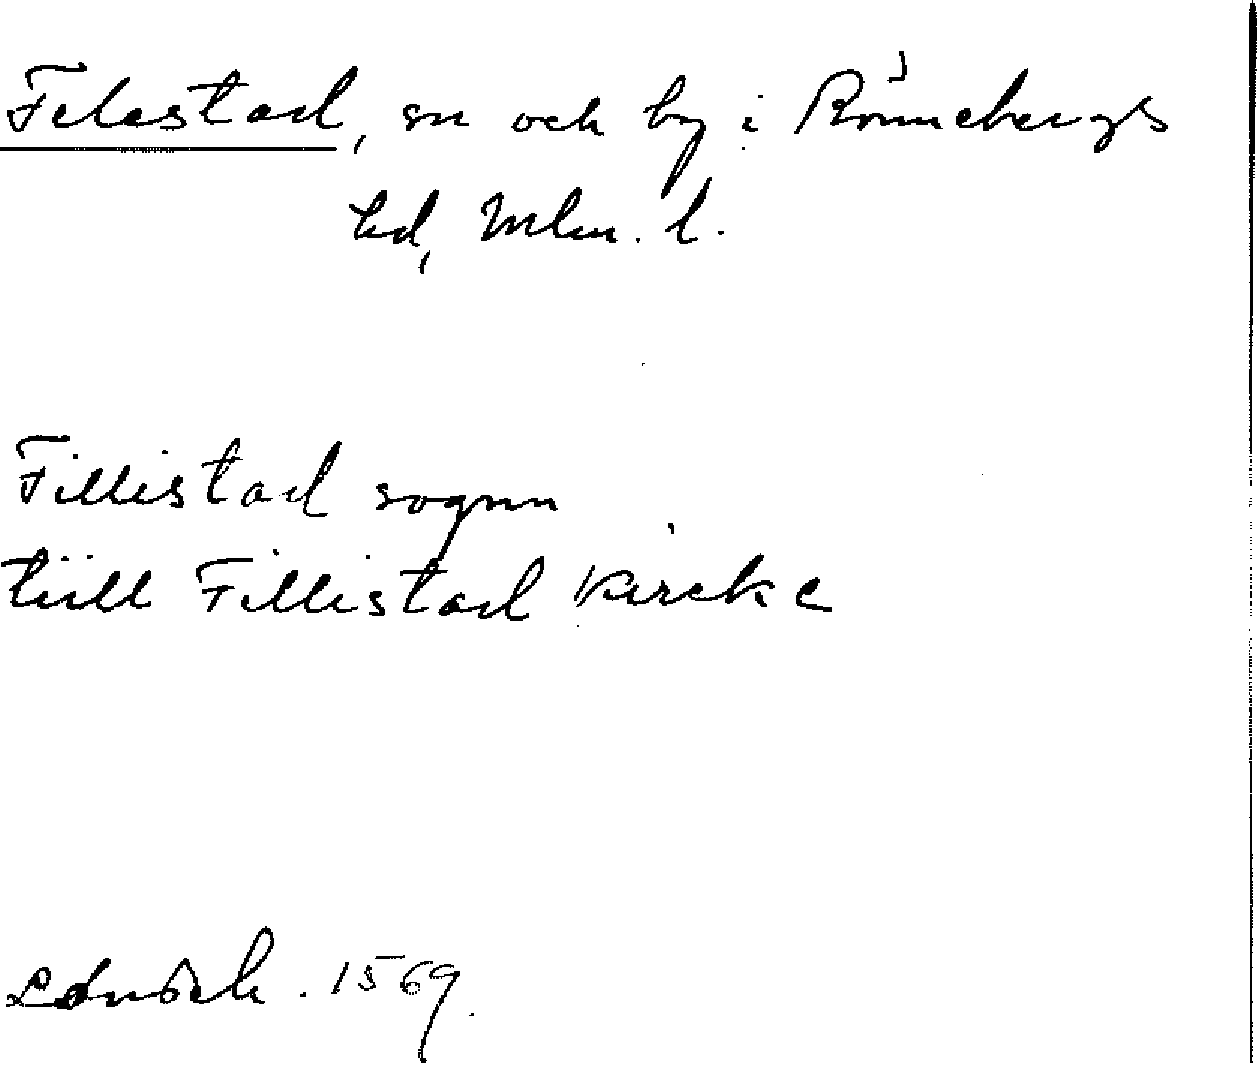 Felestad, sn och by i Rönnebergs
hd, Mlm. l.
Fillistad sognn
tiill Fillistad kircke
1569.